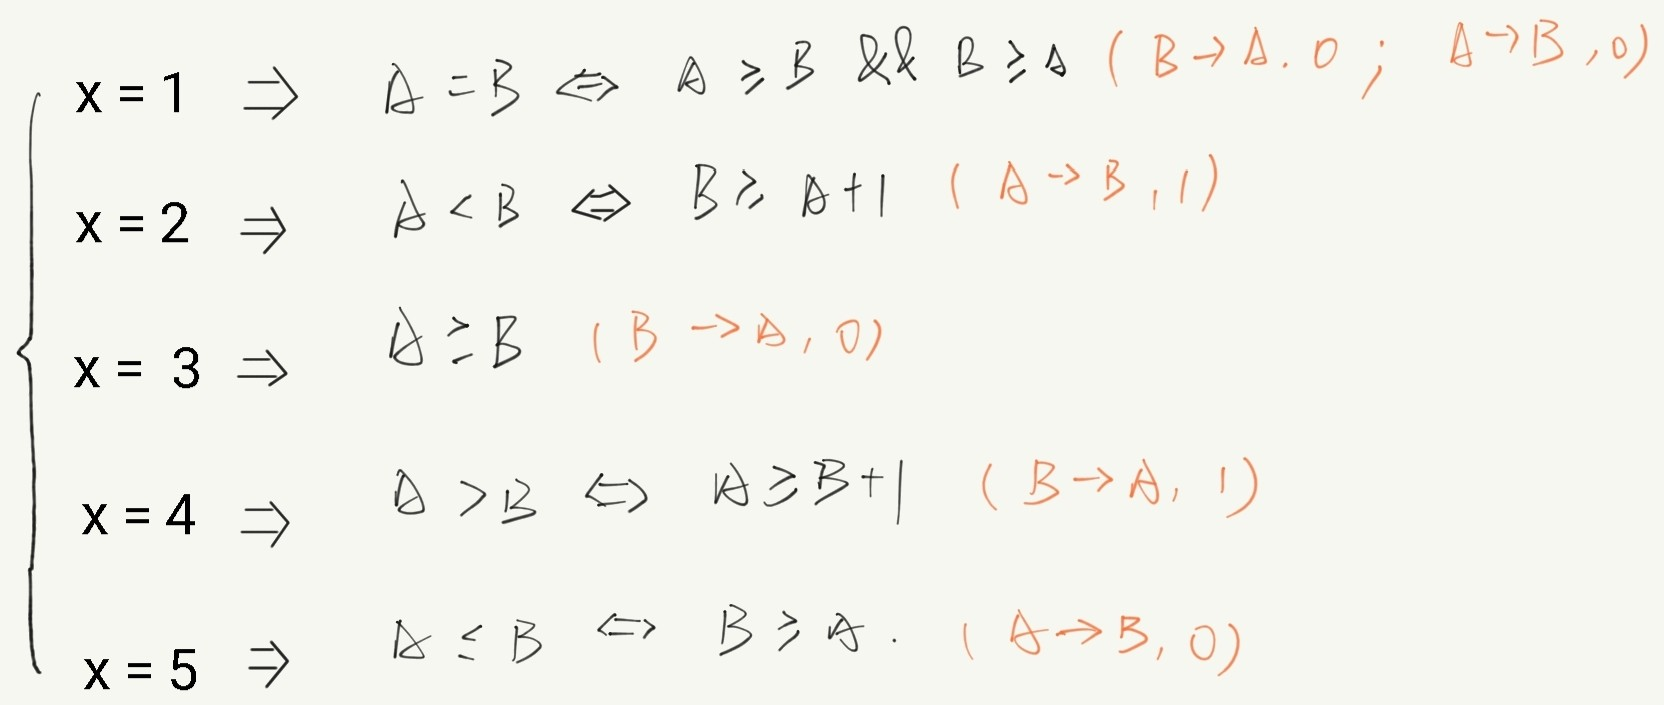 x = 1 ⇒ A = B ⇔ A ≥ B && B ≥ A ( B → A. 0 ; A → B , 0)
x = 2 ⇒ A < B ⇔ B ≥ A+1 ( A → B , 1)
x = 3 ⇒ A ≥ B ( B → A, 0)
x = 4 ⇒ A > B ⇔ A ≥ B+1 ( B → A, 1)
x = 5 ⇒ A ≤ B ⇔ B ≥ A . ( A → B, 0)